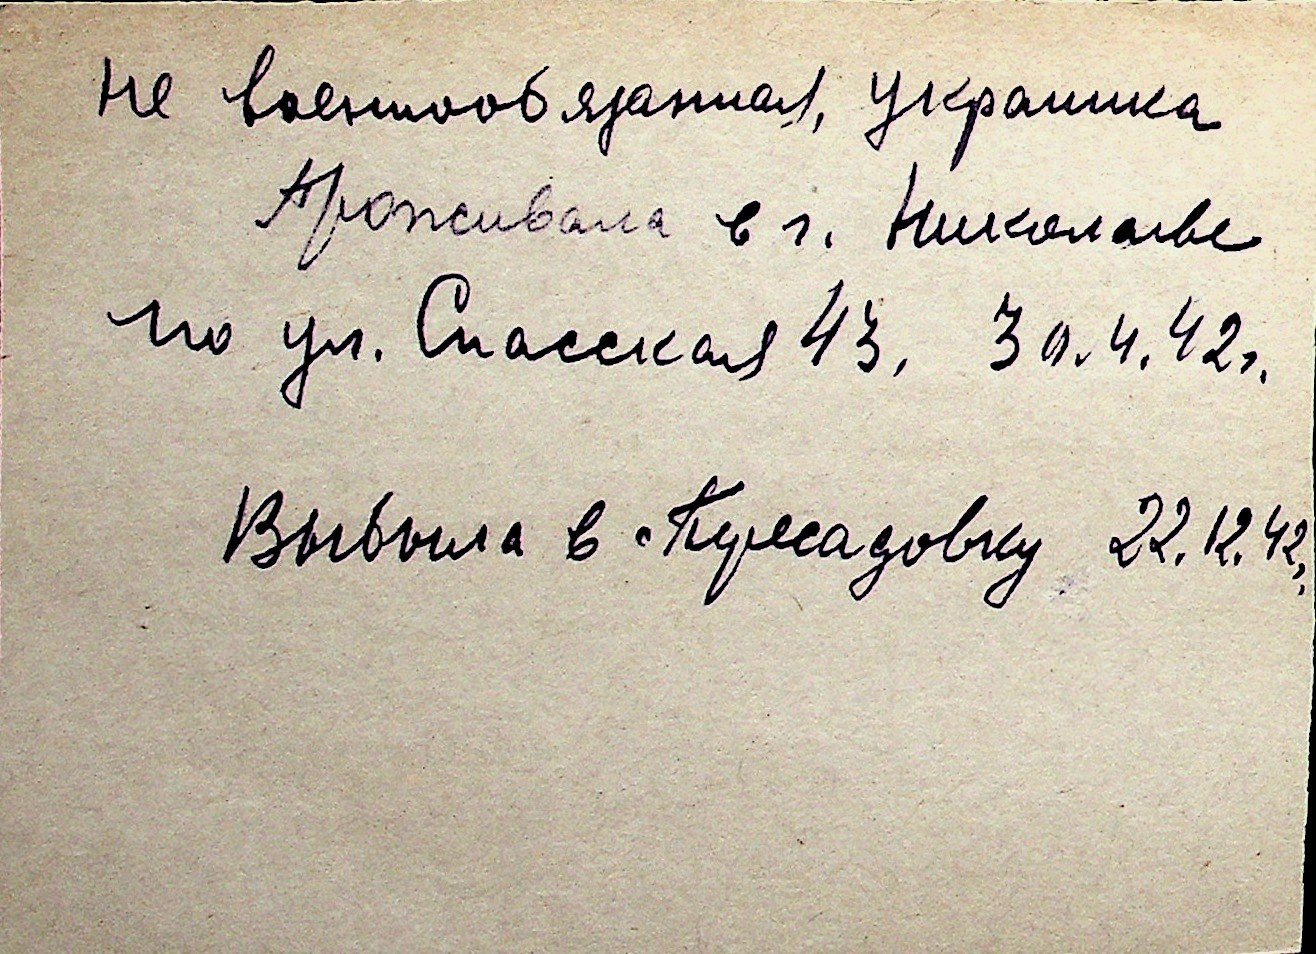 не военнообязанная, украинка
Проживала в г. Николаеве
по ул. Спасская 43, 30.4.42г.
Выбыла в Пересадовку 22.12.42г.